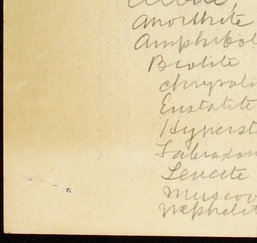 Albite,
Anorthite
Amphibol
Biotite
Chrysol
Enstatite
Hyperst
Labradori
Leucite
Muscov
Nephelit